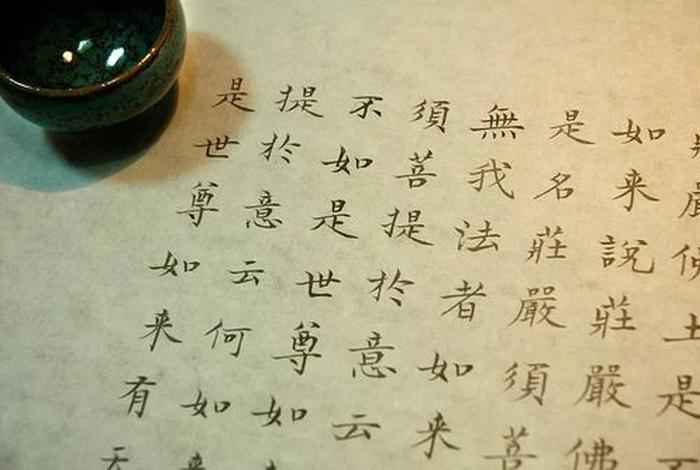 土是
如来說莊嚴佛
是名莊嚴須菩
無我法者如来
須菩提於意云
不如是世尊如
提於意云何如来
是世尊如来有天